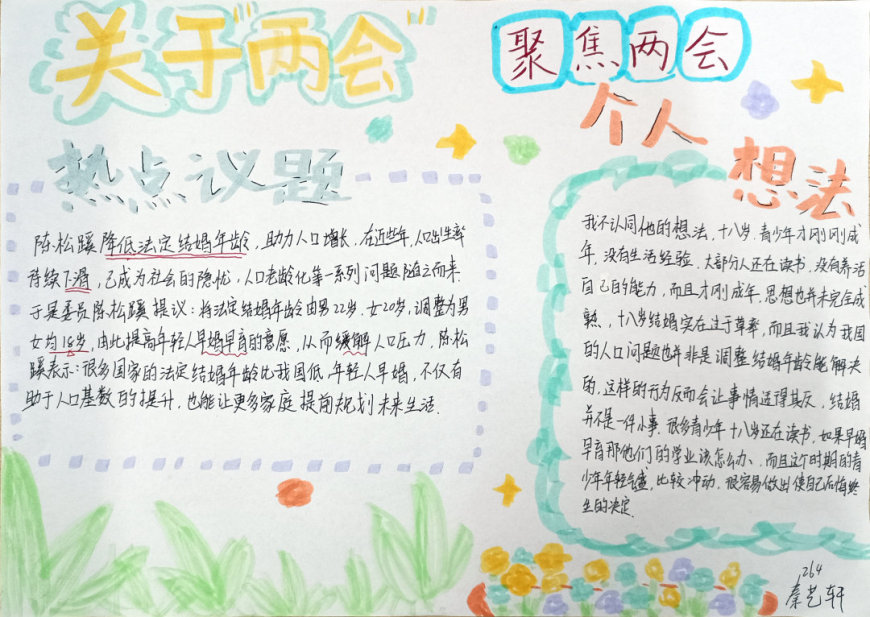 关于"两会"
聚焦两会
热点议题
陈松蹊降低法定结婚年龄，助力人口增长。在近些年，人口出生率
持续下滑，已成为社会的隐忧，人口老龄化等一系列问题随之而来.
于是委员陈松蹊提议：将法定结婚年龄由男22岁.女20岁，调整为男
女均18岁，由此提高年轻人早婚早育的意愿，从而缓解人口压力，陈松
蹊表示：很多国家的法定结婚年龄比我国低，年轻人早婚，不仅有
助于人口基数的提升，也能让更多家庭提前规划未来生活.
个人
想法
我不认同他的想法，十八岁.青少年才刚刚成
年，没有生活经验.大部分人还在读书，没有养活
自己的能力，而且才刚成年，思想也并未完全成
熟，十八岁结婚实在过于草率，而且我认为我国
的人口问题也并非是调整结婚年龄能解决
的，这样的行为反而会让事情适得其反，结婚
并不是一件小事.很多青少年十八岁还在读书，如果早婚
早育那他们的学业该怎么办、而且这个时期的青
少年年轻气盛，比较冲动.很容易做出使自己后悔终
生的决定.
264
秦艺轩